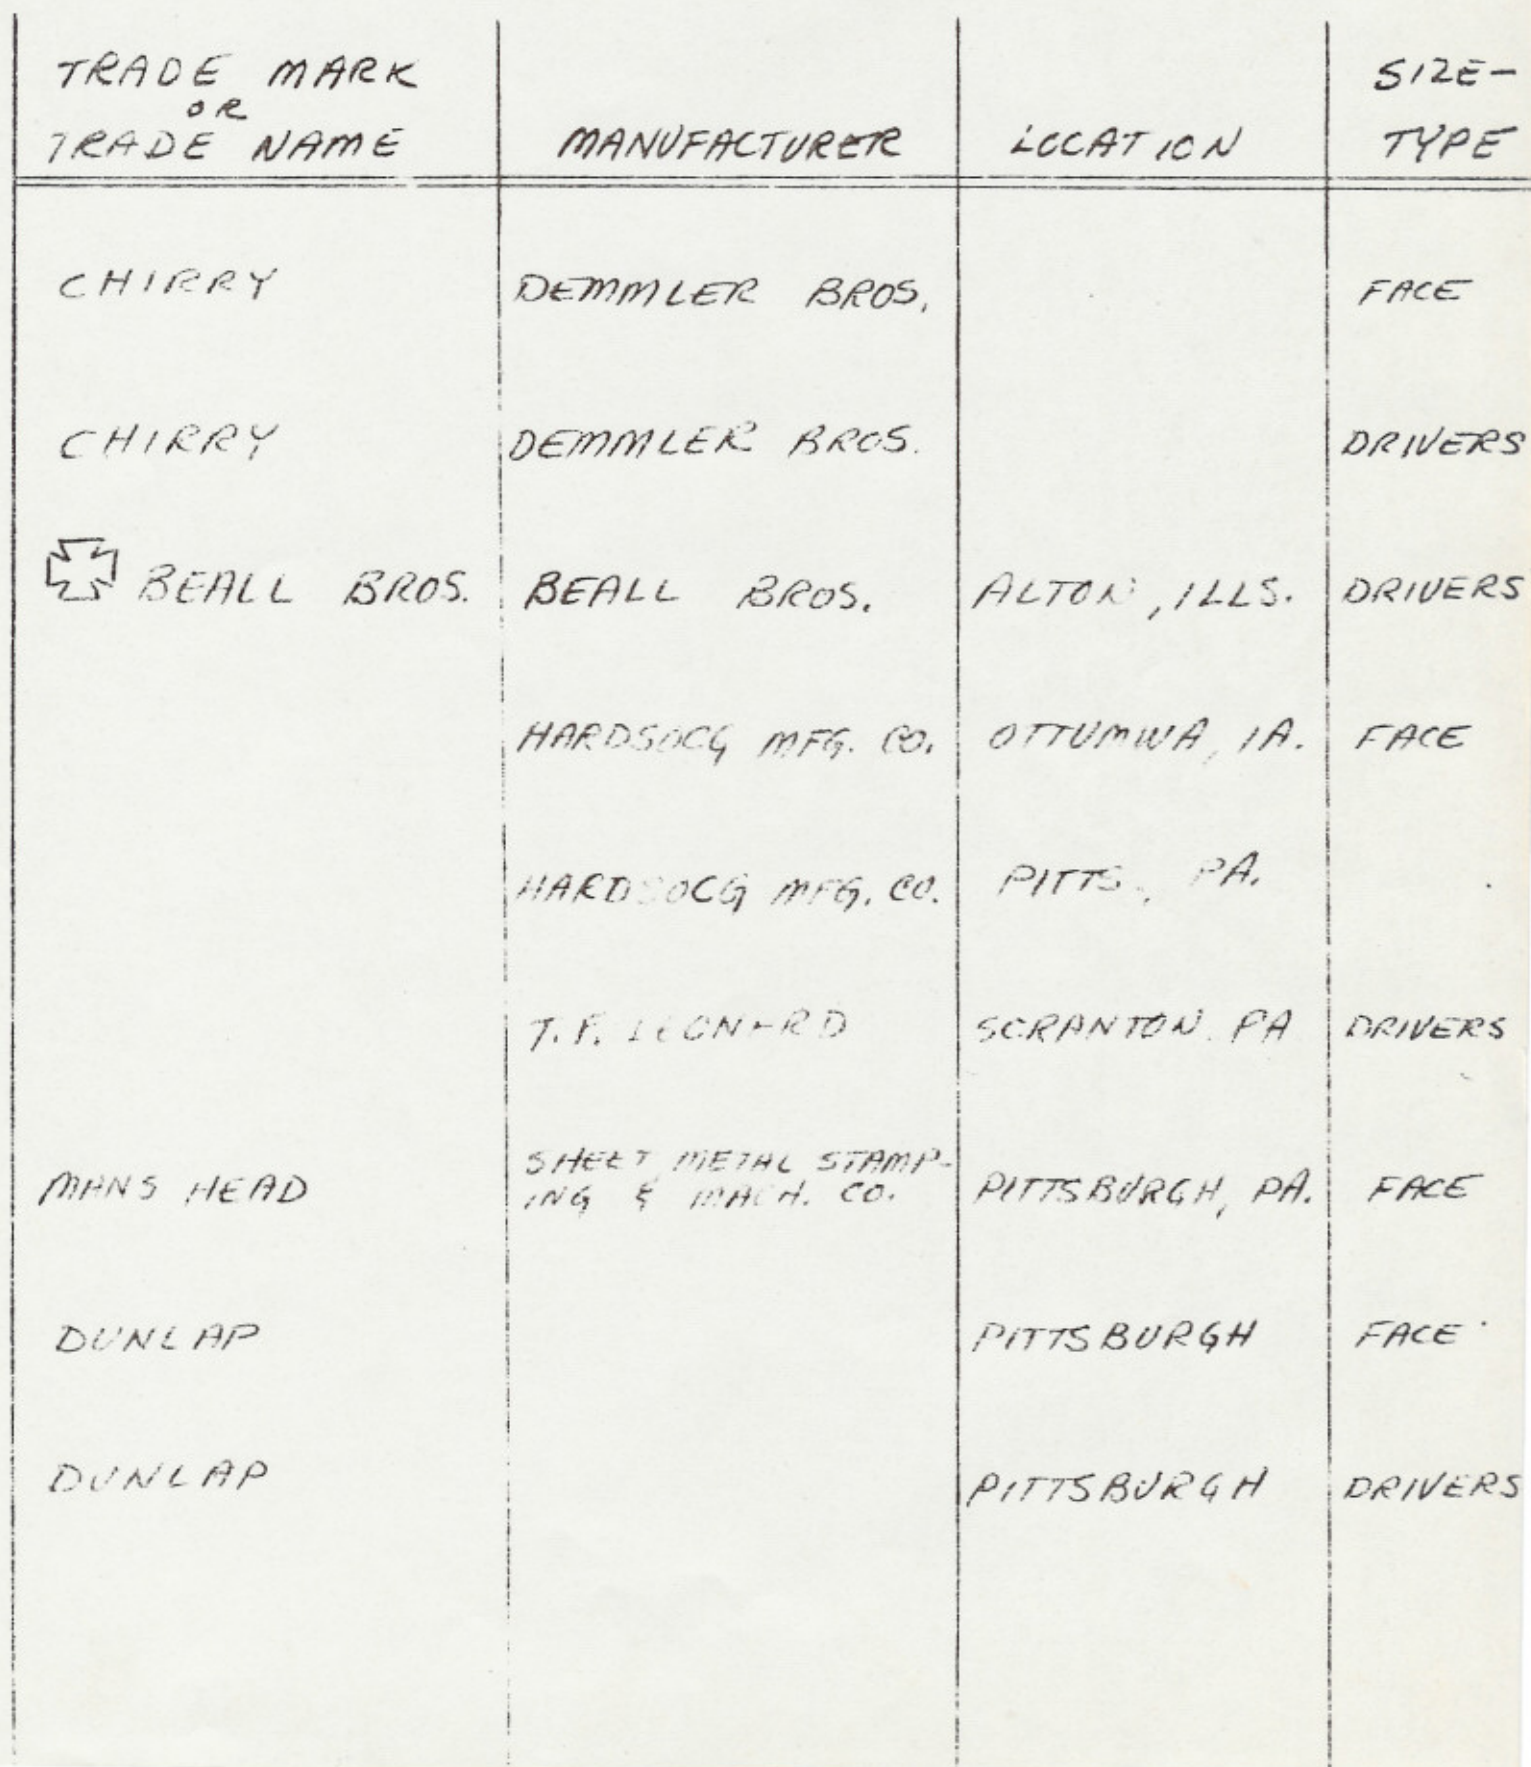 TRADE MARK
OR
TRADE NAME MANUFACTURER LOCATION SIZE-
TYPE
CHIRRY DEMMLER BROS. FACE
CHIRRY DEMMLER BROS. DRIVERS
BEALL BROS. BEALL BROS. ALTON, ILLS. DRIVERS
HARDSOCG MFG. CO. OTTUMWA, IA. FACE
HARDSOCG MFG. CO. PITTS., PA.
T.F. LEONARD SCRANTON. PA DRIVERS
MANS HEAD SHEET METAL STAMP-
ING & MACH. CO. PITTSBURGH, PA. FACE
DUNLAP PITTSBURGH FACE
DUNLAP PITTSBURGH DRIVERS